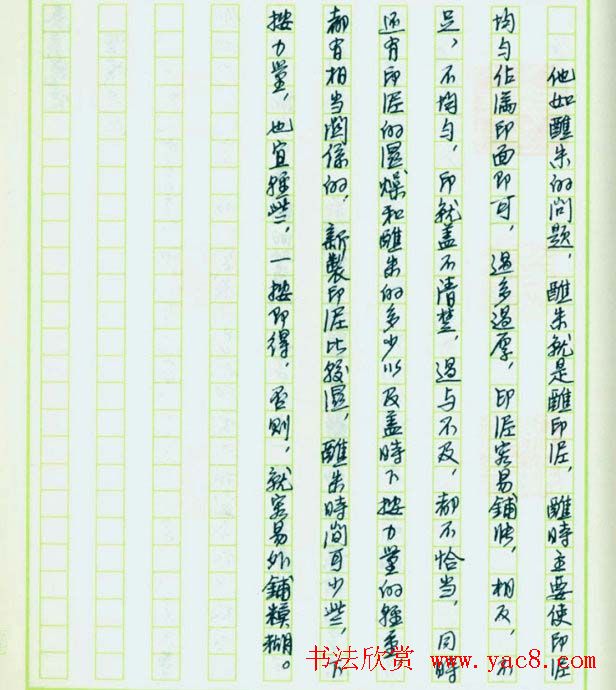 他如蘸朱的问题，蘸朱就是蘸印泥，蘸時主要使印泥
均匀佔滿印面即可，過多過厚，印泥容易鋪张，相反，不
足，不均匀，印就盖不清楚，過与不及，都不恰当，同時
还有印泥的濕燥和蘸朱的多少以及盖時下按力量的輕重
都有相当関係的，新製印泥比較濕，蘸朱時间可少些，下
按力量，也宜輕些，一按即得，否则，就容易外鋪糢糊。
书法欣赏 www.yac8.com